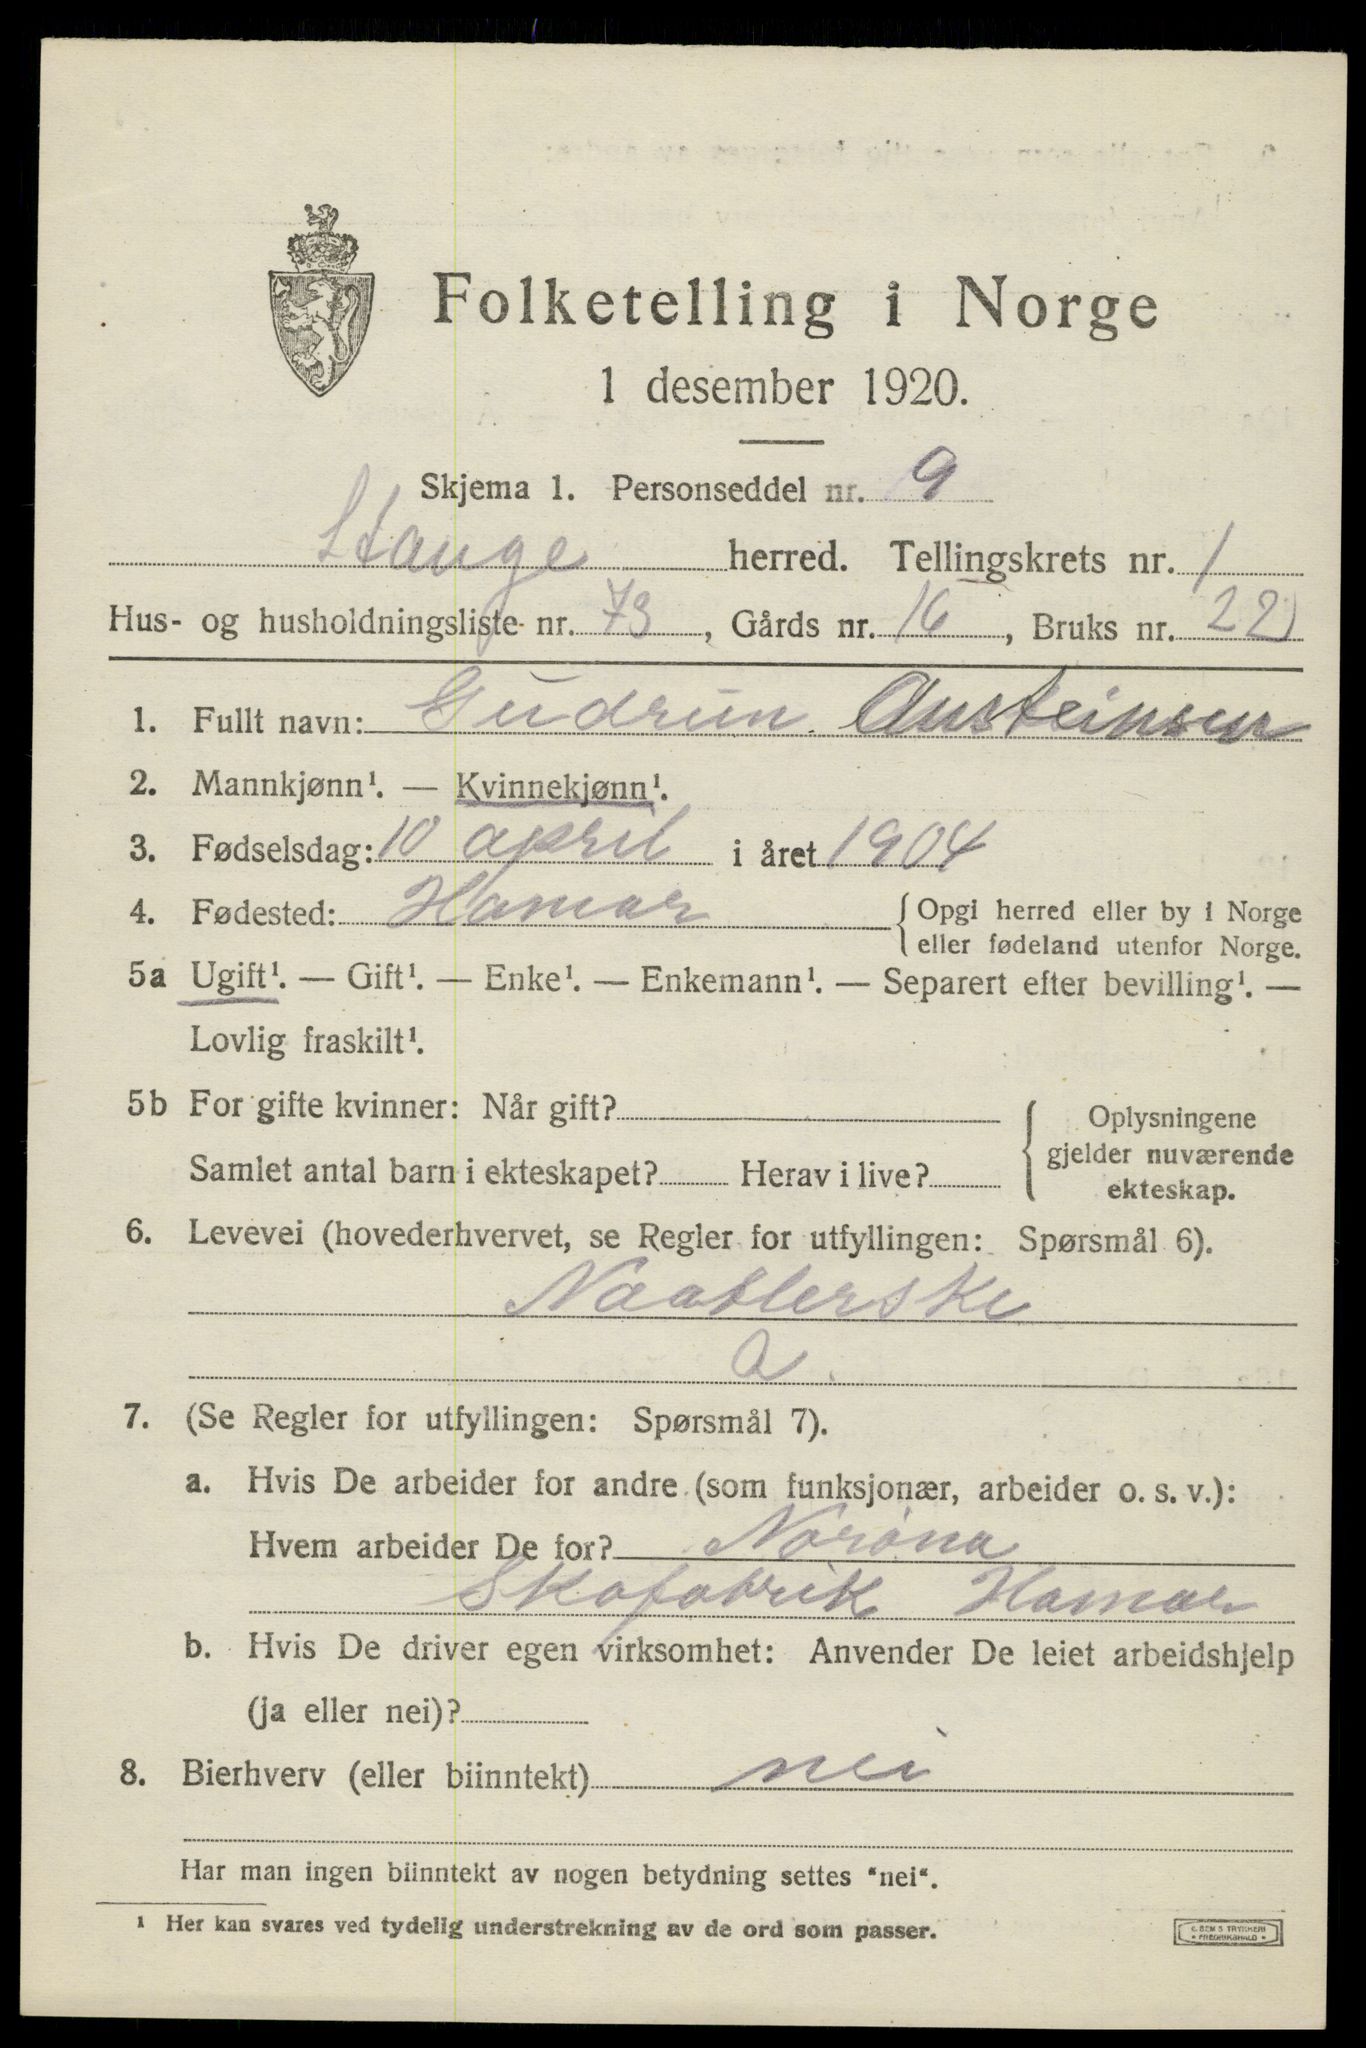 Folketelling i Norge
1 desember 1920.
Skjema 1. Personseddel nr. 9
Stange herred. Tellingskrets nr. 1
Hus- og husholdningsliste nr. 73, Gårds nr. 16, Bruks nr. 22
1. Fullt navn: Gudrun Austeinsen
2. Mannkjønn¹. — Kvinnekjønn¹.
3. Fødselsdag: 10 april i året 1904
4. Fødested: Hamar { Opgi herred eller by i Norge
eller fødeland utenfor Norge.
5a Ugift¹. — Gift¹. — Enke¹. — Enkemann¹. — Separert efter bevilling¹. —
Lovlig fraskilt¹.
5b For gifte kvinner: Når gift? { Oplysningene
gjelder nuværende
Samlet antal barn i ekteskapet? Herav i live?
ekteskap.
6. Levevei (hovederhvervet, se Regler for utfyllingen: Spørsmål 6).
Naatlerske
a.
7. (Se Regler for utfyllingen: Spørsmål 7).
a. Hvis De arbeider for andre (som funksjonær, arbeider o. s. v.):
Hvem arbeider De for? Norøna
Skofabrik Hamar
b. Hvis De driver egen virksomhet: Anvender De leiet arbeidshjelp
(ja eller nei)?
8. Bierhverv (eller biinntekt) nei
Har man ingen biinntekt av nogen betydning settes "nei".
¹ Her kan svares ved tydelig understrekning av de ord som passer.
E. SEM'S TRYKKERI
• FREDRIKSHALD •